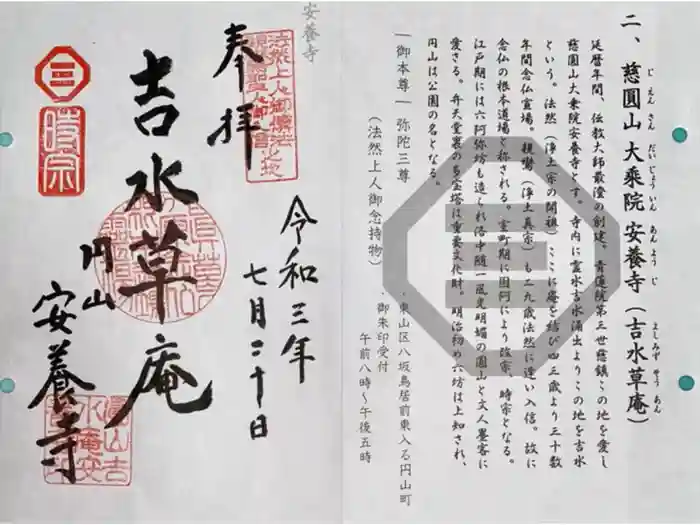 二、慈圓山大乗院安養寺（吉水草庵）
じえんさんだいじょういんあんようじ
よしみずそうあん
延暦年間、伝教大師最澄の創建、青蓮院第三世慈鎮この地を愛し
慈圓山大乗院安養寺とす。寺内に霊水吉水涌出よりこの地を吉水
という。法然（浄土宗の開祖）ここに庵を結び四三歳より三十数
年間念仏宣場。親鸞（浄土真宗）も二九歳法然に逢い入信。故に
念仏の根本道場と称される。室町期に国阿により改宗、時宗となる。
江戸期には六阿弥坊も造られ洛中随一風光明媚の圓山と文人墨客に
愛さる。弁天堂裏の多宝塔は重要文化財。明治初め六坊は上知され、
円山は公園の名となる。
―御本尊―弥陀三尊
（法然上人御念持物）
・東山区八坂鳥居前東入る円山町
・御朱印受付
午前八時～午後五時
安養寺
奉拝
吉水草庵
円山
安養寺
令和三年
七月二十日
三
時宗